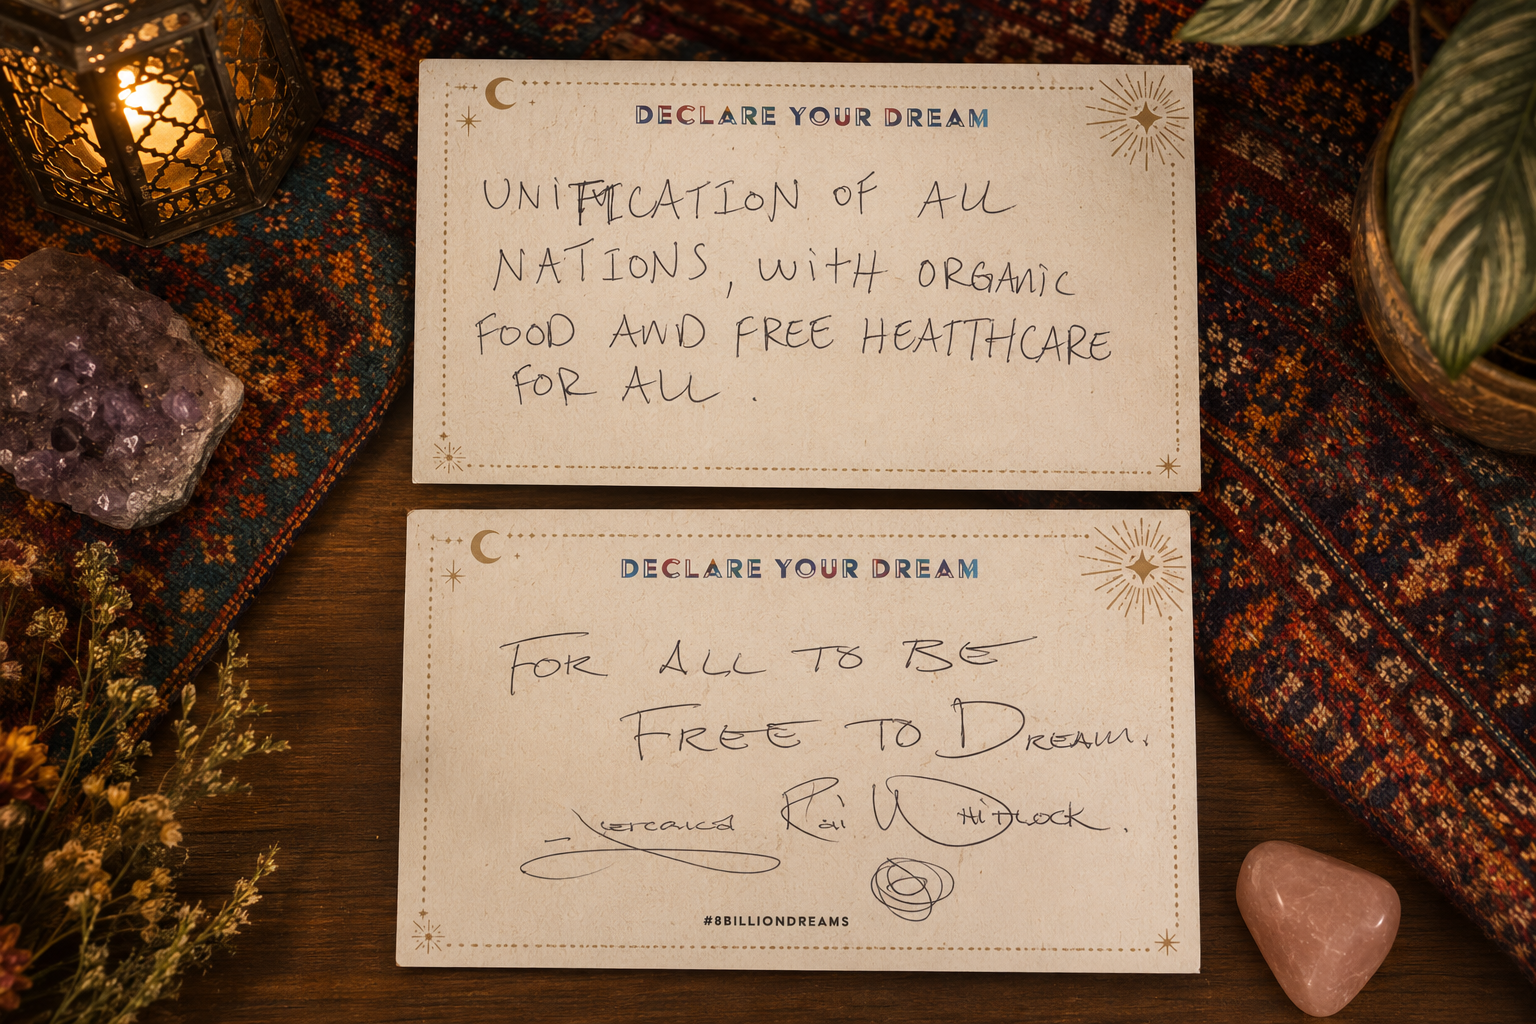 DECLARE YOUR DREAM
UNIFICATION OF ALL
NATIONS, WITH ORGANIC
FOOD AND FREE HEALTHCARE
FOR ALL.
DECLARE YOUR DREAM
FOR ALL TO BE
FREE TO DREAM.
Veronica Rai Whitlock.
#8BILLIONDREAMS